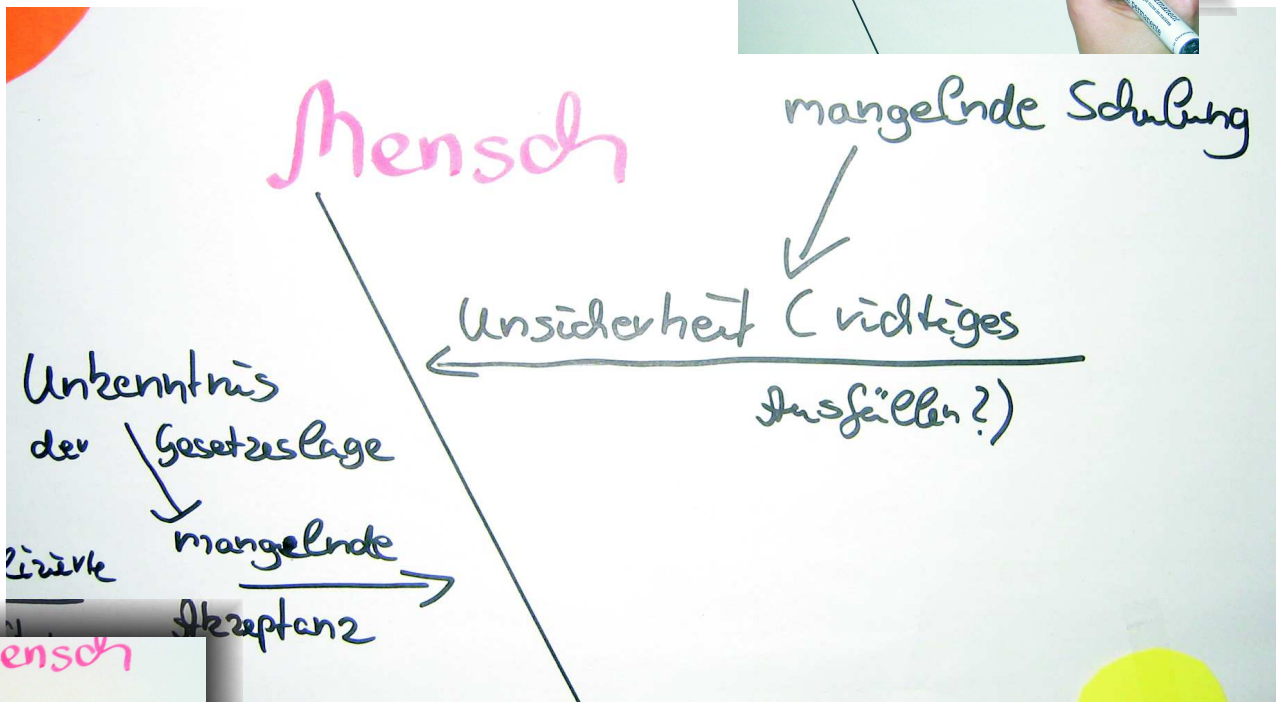 Mensch
mangelnde Schulung
Unsicherheit (richtiges
Ausfüllen?)
Unkenntnis
der Gesetzeslage
mangelnde
Akzeptanz
lizierte
ensch